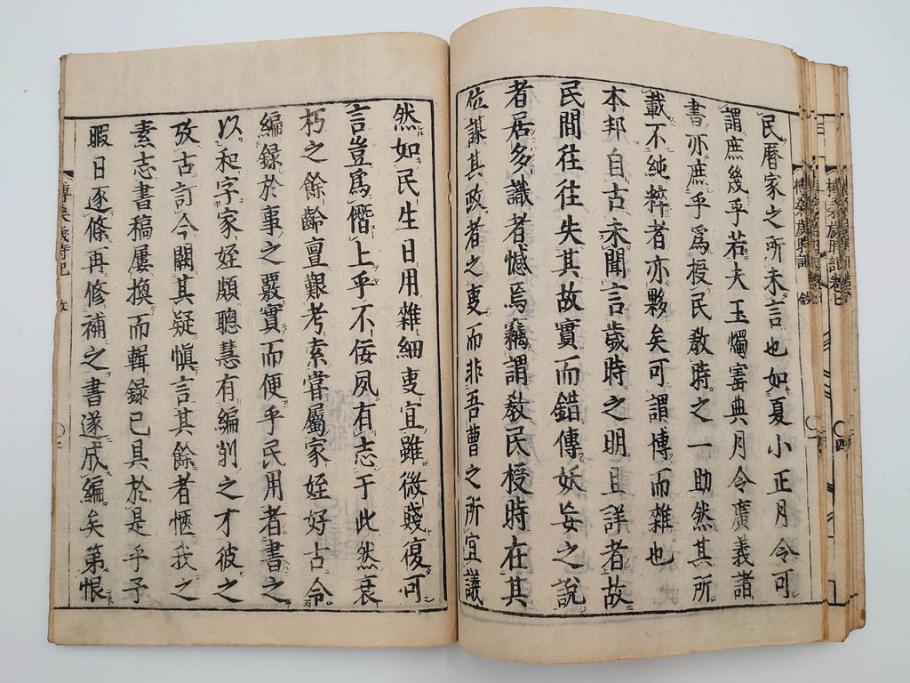 民曆家之所未言也如夏小正月令可
謂庶幾乎若夫玉燭寶典月令廣義諸
書亦庶乎爲授民敎時之一助然其所
載不純粹者亦夥矣可謂博而雜也
本邦自古未聞言歲時之明且詳者故
民間往往失其故實而錯傳妖妄之說
者居多識者憾焉竊謂敎民授時在其
位謀其政者之叓而非吾曹之所宜議
然如民生日用雜細叓宜雖微賤復可
言豈爲僭上乎不佞夙有志于此然衰
朽之餘齡亶艱考索嘗屬家姪好古令
編録於事之覈實而便乎民用者書之
以和字家姪頗聰慧有編削之才彼之
攷古訂今闕其疑愼言其餘者愜我之
素志書稿屢換而輯録已具於是乎予
暇日逐條再修補之書遂成編矣第恨